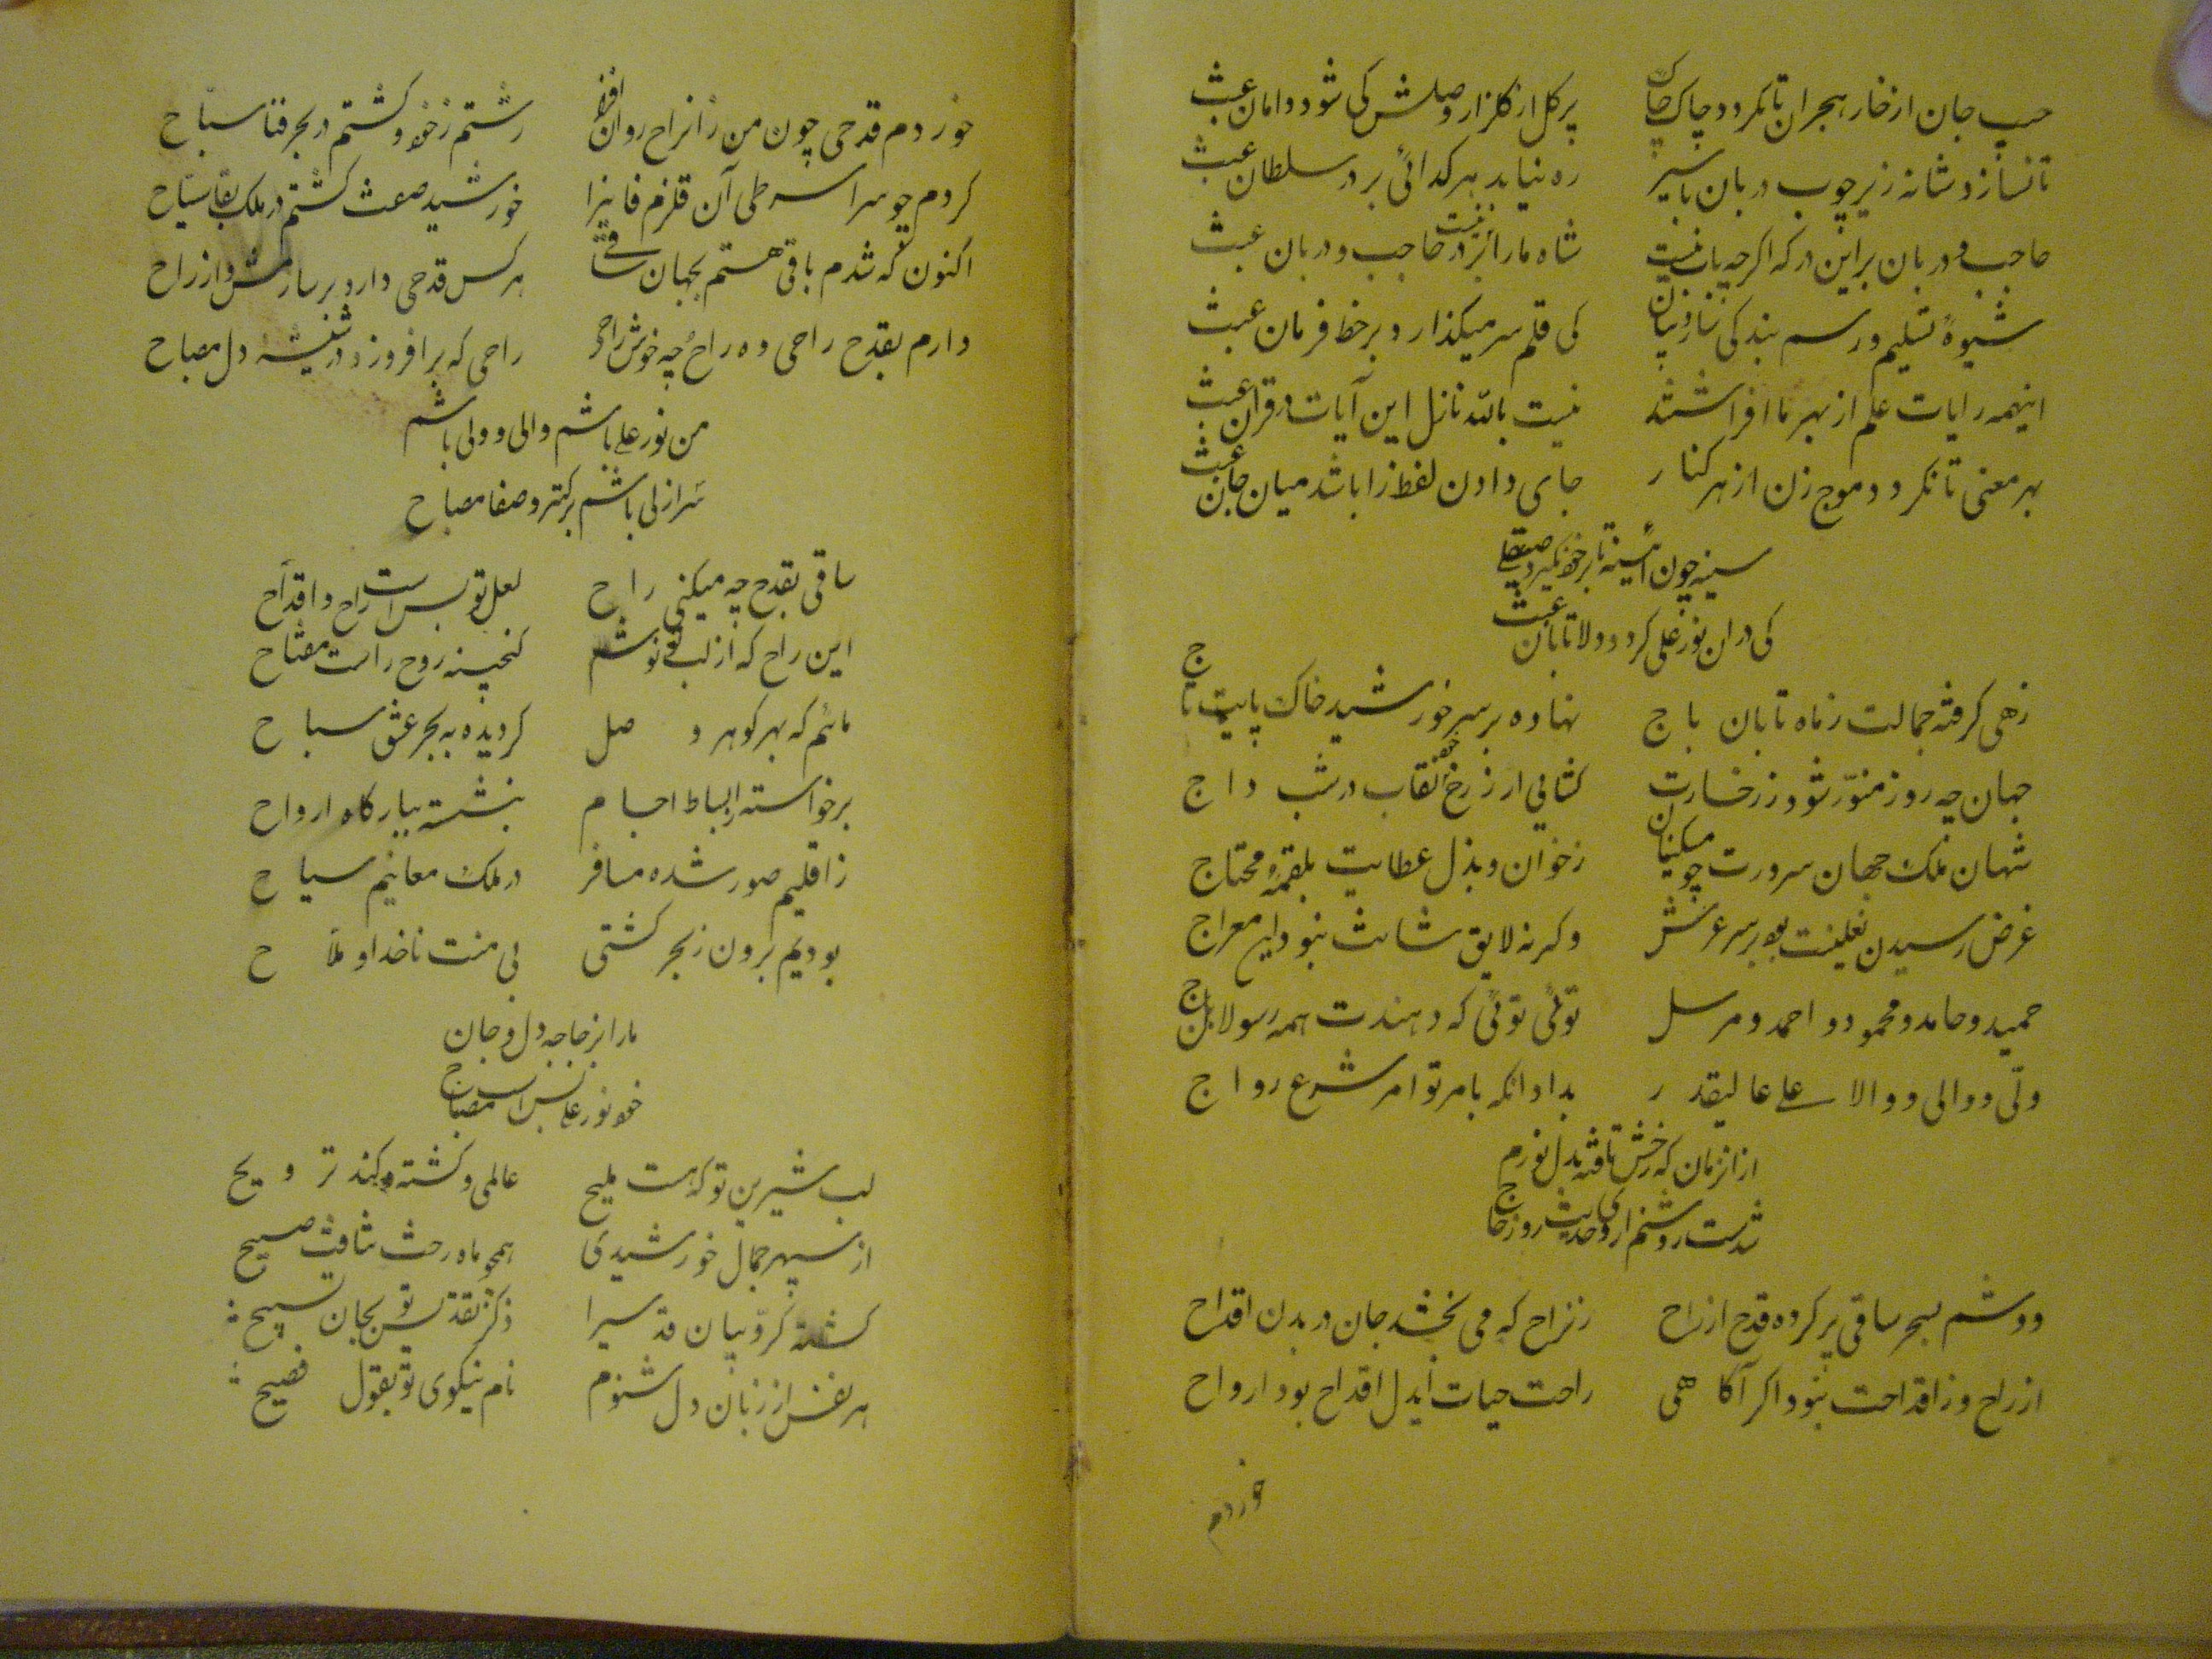 جیب جان از خار هجران تا نکردد چاک چاک پر کل از کلزار وصلش کی شود دامان عبث
تا نسازد شانه زیر چوب دربان پا سیر ره نیابد هر کدائی بر در سلطان عبث
حاجب و دربان براین درکه اکرچه باب نیست شاه ما را نیست بر در حاجب و دربان عبث
شیوهٔ تسلیم و رسم بندکی کی قلم سر میکذارد بر خط فرمان عبث
اینهمه رایات علم از بهر ما افراشتند نیست بالله نازل این آیات در قران عبث
بهر معنی تا نکردد موج زن از هر کنار جای دادن لفظ را باشد میان جان عبث
سینه چون آئینه تا بر خود نکیرد صیقلی
کی در ان نور علی کردد ولا تابان عبث
زهی کرفته جمالت ز ماه تابان باج نهاده بر سر خورشید خاک پایت تاج
جهان چه روز منور شود ز رخسارت کشائی ار ز رخ خود نقاب در شب داج
شهان ملک جهان سرورت چو مسکینان ز خوان و بذل عطایت بلقمهٔ محتاج
غرض رسیدن نعلینت بود بر سر عرش وکرنه لایق شانت نبود این معراج
حمید و حامد و محمود و احمد و مرسل توئی توئی که دهندت همه رسولان باج
ولی و والی و والا علی عالیقدر بداد انکه بامر تو امر شرع رواج
از انزمان که رخش تافته بدل نورم
شدست روشنم از وی حدیث روز
دوشم بسحر ساقی پر کرده قدح از راح زنراح که می بخشد جان در بدن اقداح
از راح و ز اقداحت نبود اکر آکاهی راحت حیات ایدل اقداح بود ارواح
خوردم
خوردم قدحی چون من زانراح روان افزا رستم ز خود و کشتم در بحر فنا سباح
کردم چو سراسر طی آن قلزم فانی را خورشید صفت کشتم در ملک بقا سیاح
اکنون که شدم باقی هستم بجهان ساقی هر کس قدحی دارد پر سازمش از راح
دارم بقدح راحی وه راح چه خوش راحی راحی که برافروزد در شیشهٔ دل مصباح
من نور علی باشم والی و ولی باشم
سر ازلی باشم بر کنز و صفا مصباح
ساقی بقدح چه میکنی راح لعل تو بس است راح و اقداح
این راح که از لب تو نوشم کنجینه روح راست مفتاح
مائم که بهر کوهر وصل کردیده به بحر عشق سباح
برخواسته از بساط اجسام بنشسته ببارکاه ارواح
ز اقلیم صور شده مسافر در ملک معانیم سیاح
بودیم برون ز بحر کشتی بی منت ناخدا و ملاح
ما را بزجاجه دل و جان
خود نور علی بس است مصباح
لب شیرین تو که هست ملیح عالمی کشته و کند ترویح
از سپهر جمال خورشیدی همچو ماه رخت نتافت صبیح
کشته کروبیان قدسی را ذکر تقدیس تو بجان تسبیح
هر نفس از زبان دل شنوم نام نیکوی تو بقول فصیح